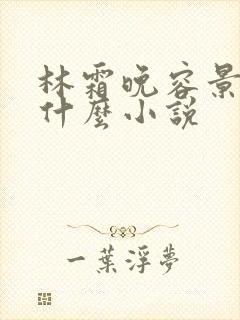 林霜晚容景
什麼小說
一葉浮夢